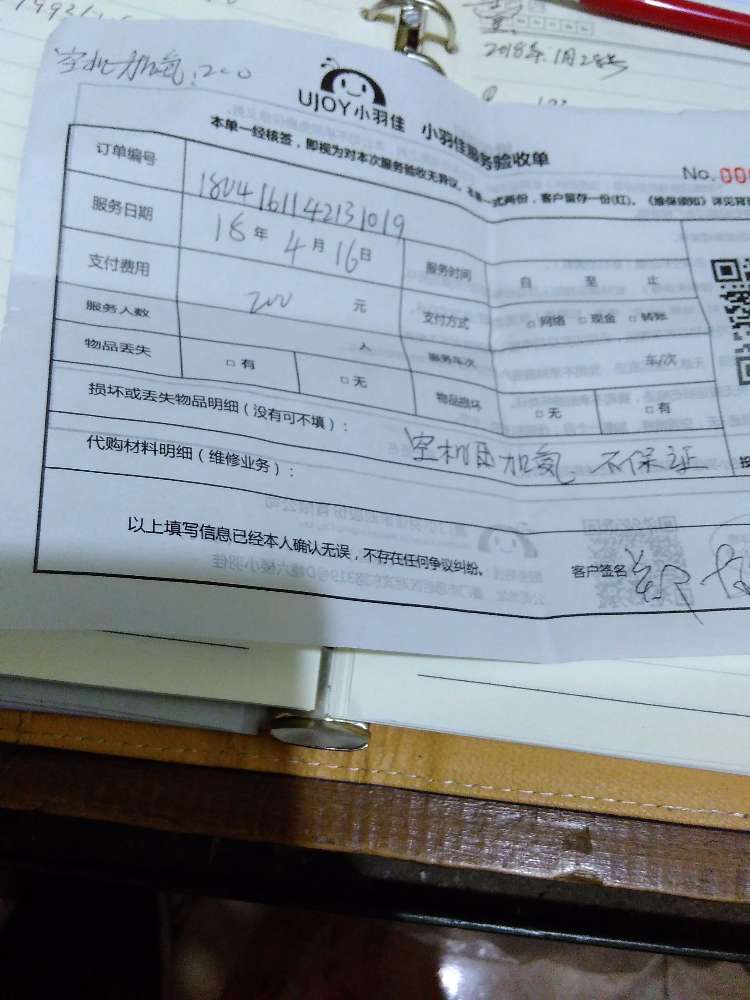 2018年1月28号
空机加氟:200
UJOY小羽佳 小羽佳服务验收单
No.000
本单一经核签，即视为对本次服务验收无异议。本单一式两份，客户留存一份(红)。《维保须知》详见背
订单编号 1804161142131019
服务日期 18年4月16日 服务时间 自 至 止
支付费用 200 元 支付方式 □网络 □现金 □转账
服务人数 人 服务车次 车/次
物品丢失 □有 □无 物品损坏 □无 □有
损坏或丢失物品明细（没有可不填）：
代购材料明细（维修业务）： 空机 加氟 不保证
以上填写信息已经本人确认无误，不存在任何争议纠纷。 客户签名